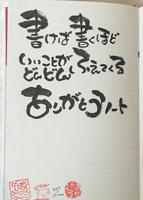 書けば書くほど
いいことが
どんどんふえてくる
ありがとうノート